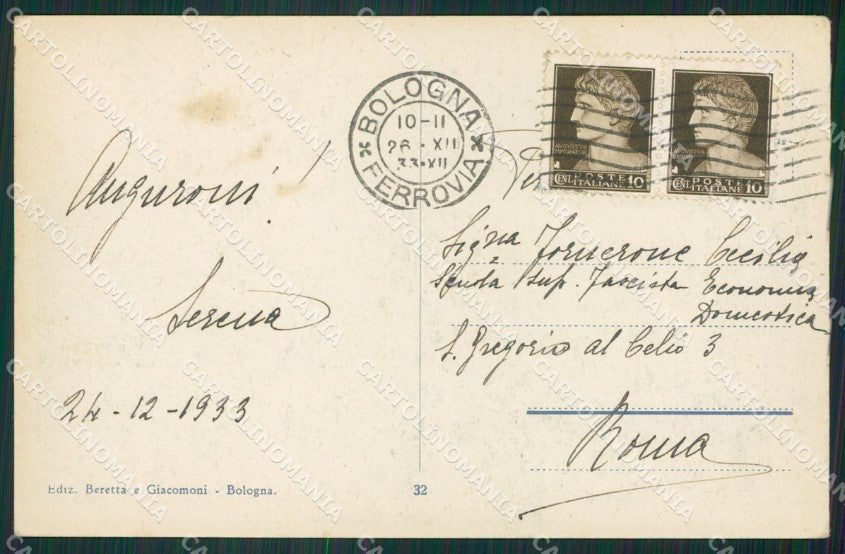 Auguroni!
Serena
24-12-1933
Ediz. Beretta e Giacomoni - Bologna.
32
BOLOGNA
10-11
26·XII
33·XII
FERROVIA
POSTE
CENT. ITALIANE 10
POSTE
CENT. ITALIANE 10
Sigra Cecilia
Scuola Sup. Fascista Economia
Domestica
S. Gregorio al Celio 3
Roma
CARTOLINOMANIA